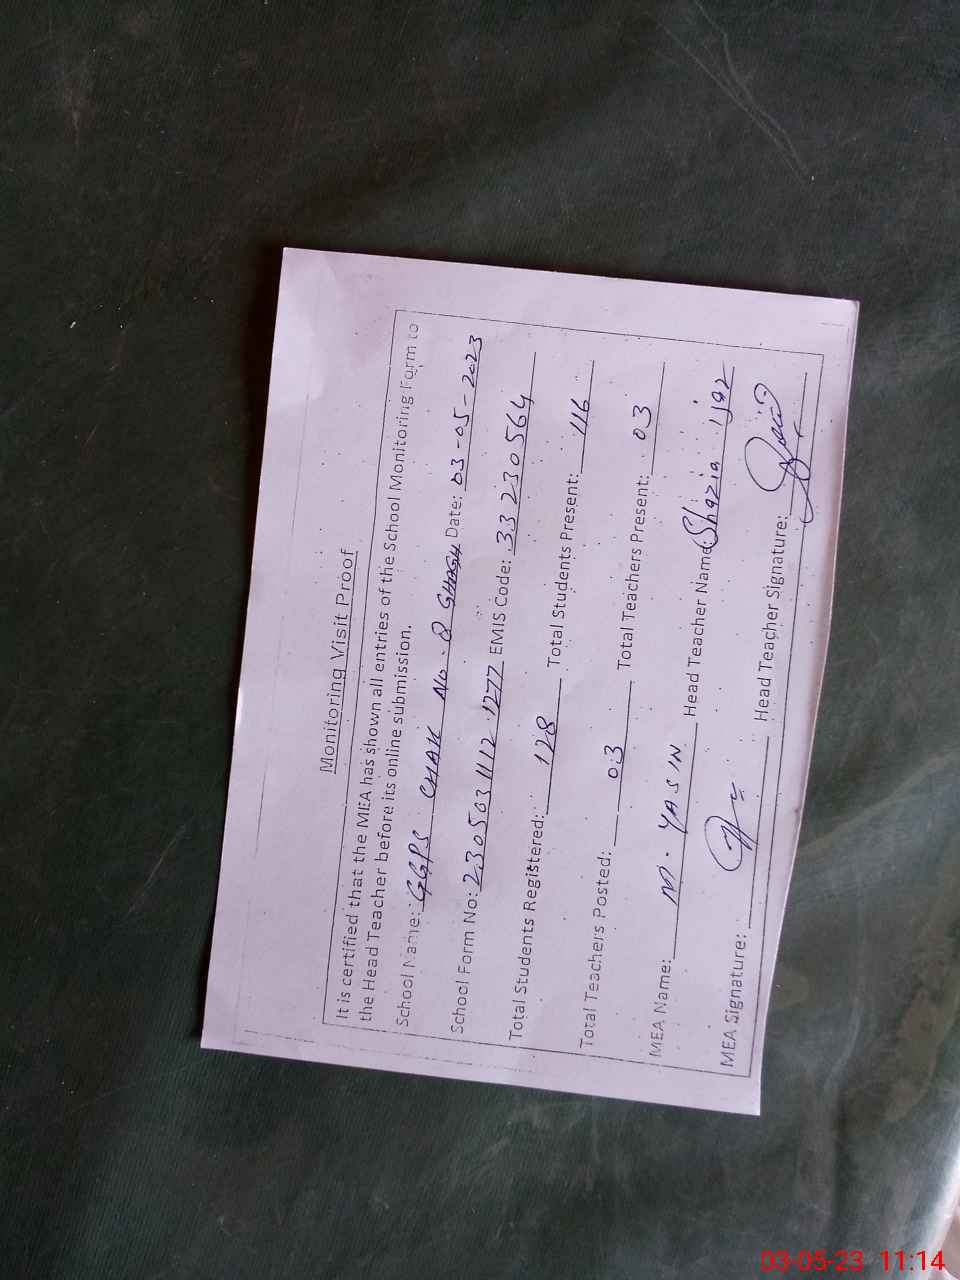 Monitoring Visit Proof
It is certified that the MEA has shown all entries of the School Monitoring Form to
the Head Teacher before its online submission.
School Name: GGPS CHAK No. 8 GHAGH Date: 03-05-2023
School Form No: 230503 1112 1277 EMIS Code: 33230564
Total Students Registered: 128 Total Students Present: 116
Total Teachers Posted: 03 Total Teachers Present: 03
MEA Name: M. YASIN Head Teacher Name: Shazia ijaz
MEA Signature: Head Teacher Signature:
03-05-23 11:14